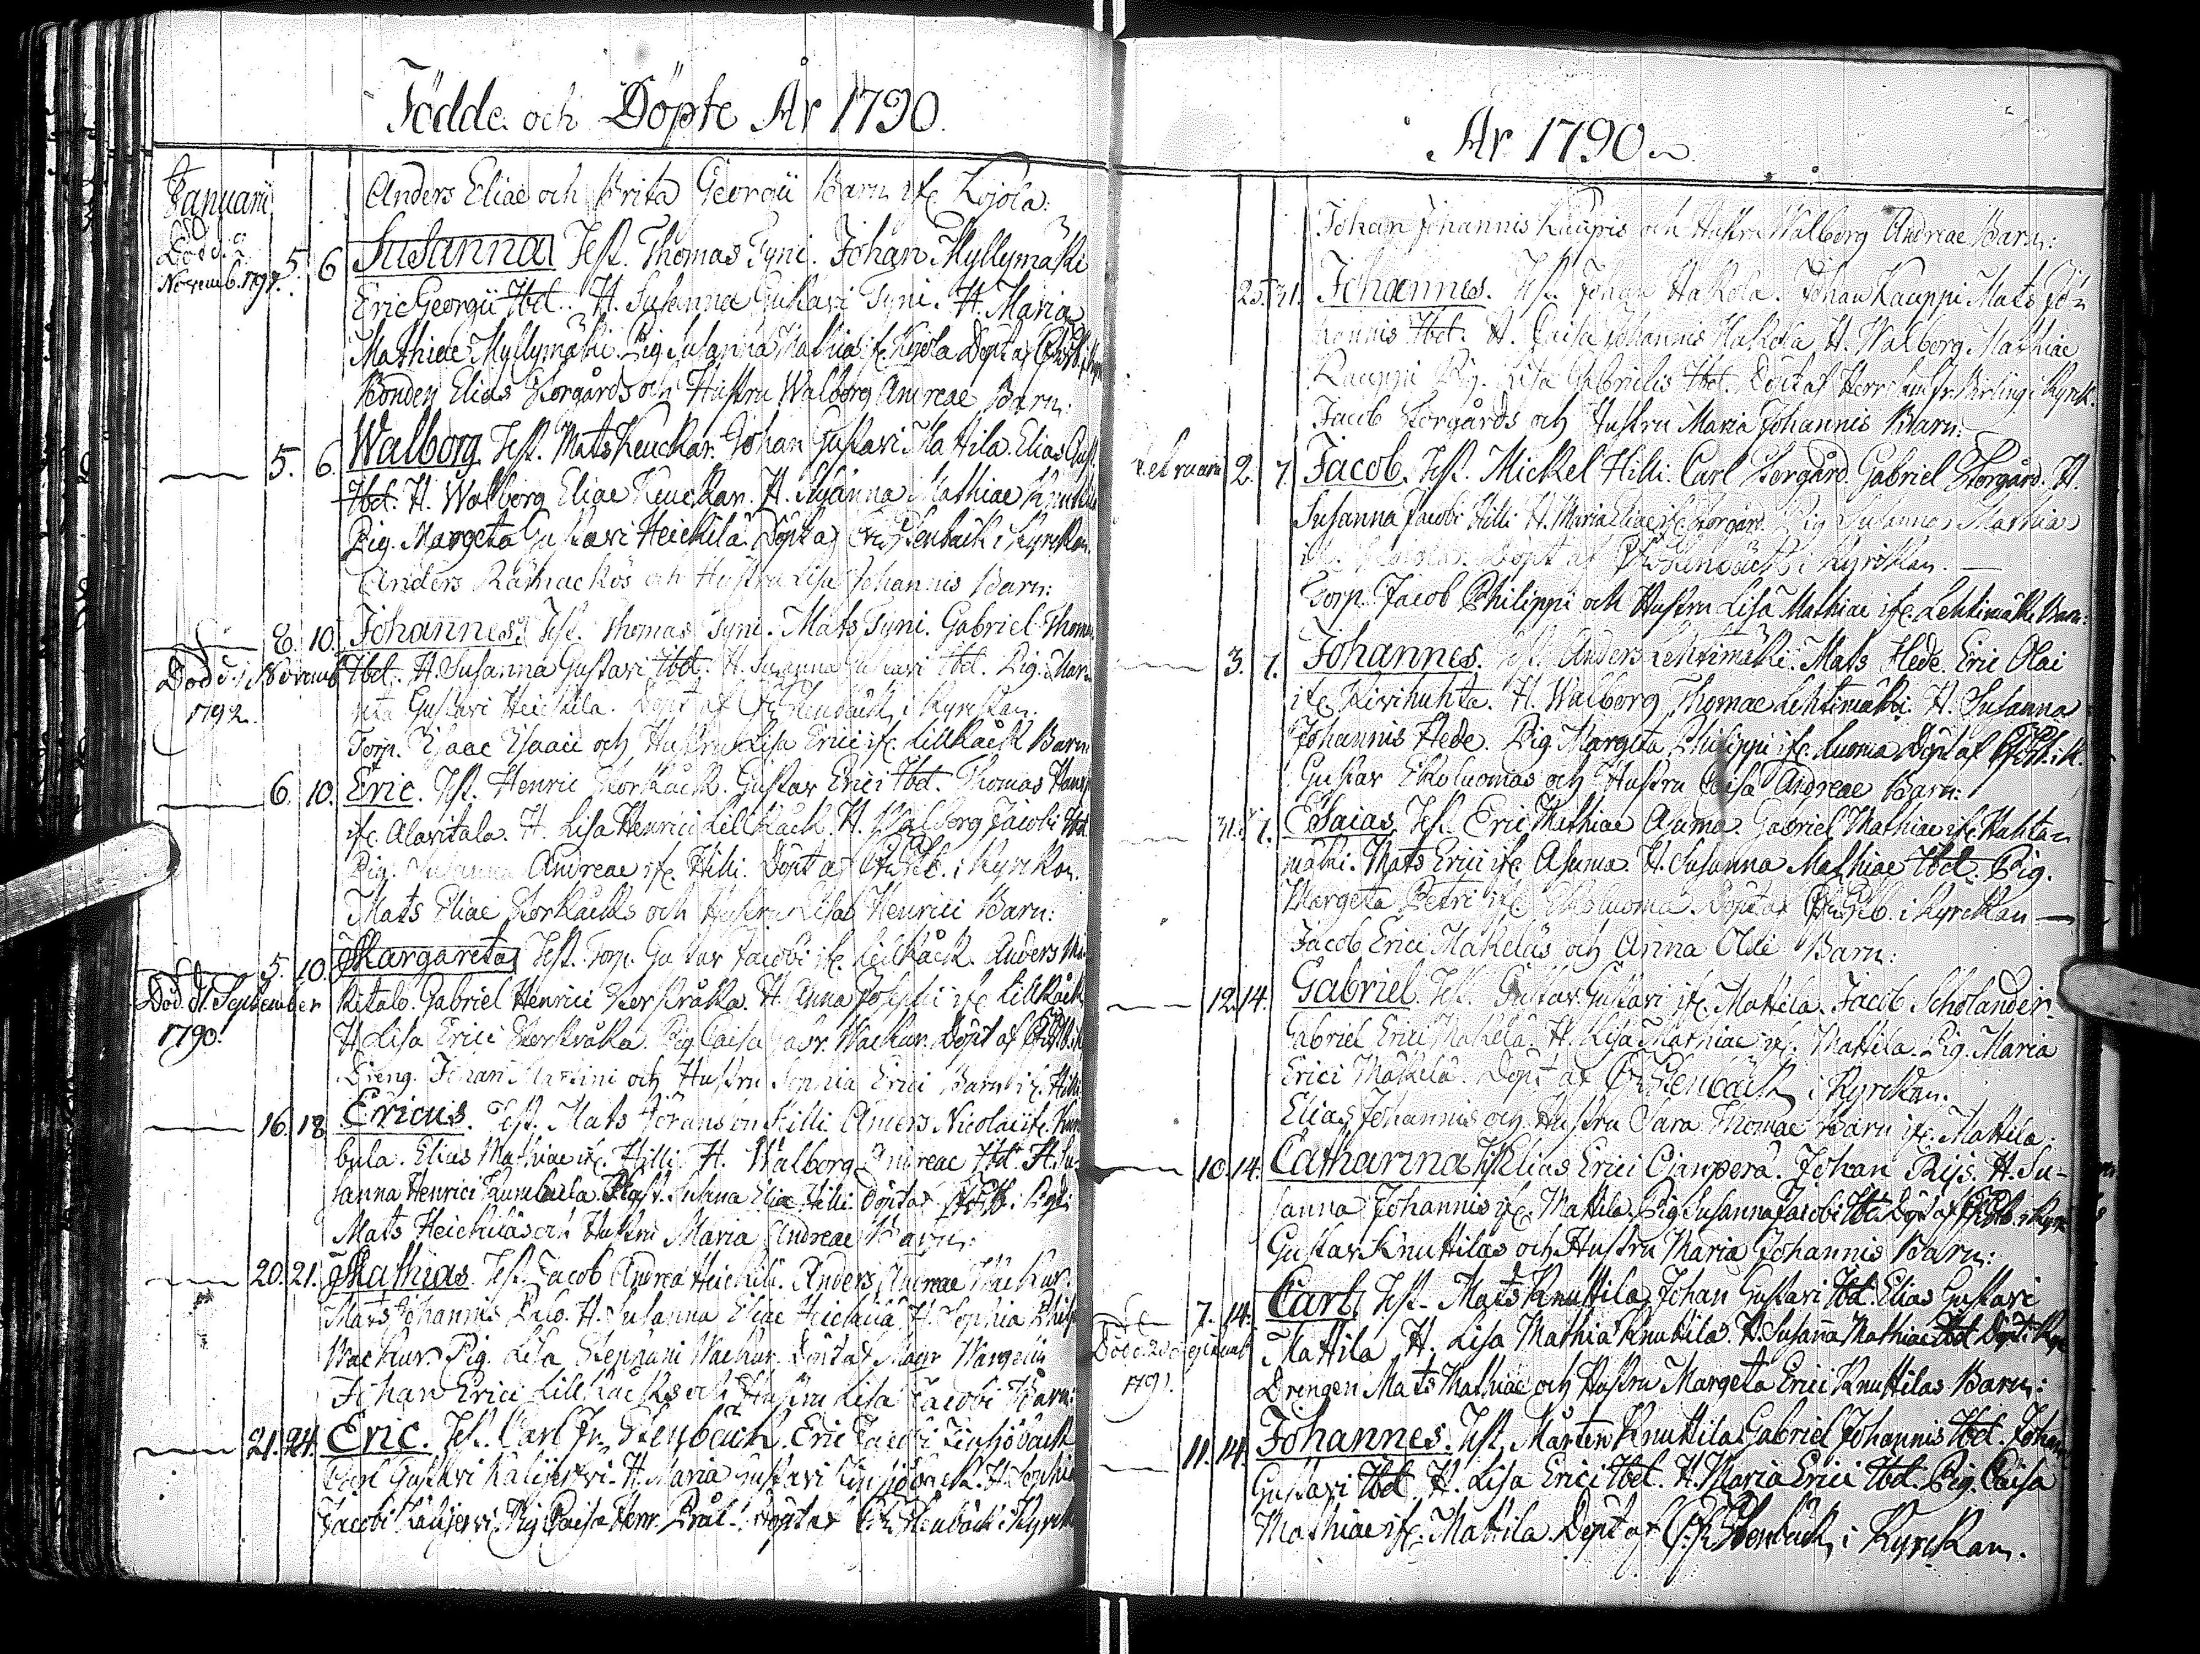 Födde och Döpte År 1790.
Januarii
Anders Eliae och Brita Georgii Barn ifr. Kojola:
Död d. 2
Novemb. 1797. 5. 6 Susanna Test. Thomas Tyni. Johan Myllymäki
Eric Georgii Ibd. H. Susanna Gustavi Tyni. H. Maria
Mathiae Myllymäki. Pig. Susanna Mathiae ifr. Kojola Döpt af
Bonden Elias Storgårds och Hustru Walborg Andreae Barn:
5. 6. Walborg Test. Mats Keuckar. Johan Gustavi Mattila. Elias Gust.
Ibd. H. Walborg Eliae Keuckar. H. Susanna Mathiae
Pig. Margeta Gustavi Heickilä. Döpt af Stenbäck i Kyrckan.
Anders och Hustru Lisa Johannis Barn:
8. 10. Johannes. Test. Thomas Tyni. Mats Tyni. Gabriel Thomae
Död d. 1 Novemb. Ibd. H. Susanna Gustavi Ibd. H. Susanna Gustavi Ibd. Pig. Mar-
1792. geta Gustavi Heickilä. Döpt af Stenbäck i Kyrckan.
Torp. Isaac Isaaci och Hustru Lisa Erici ifr. Lillkåck Barn
6. 10. Eric. Test. Henric Storkåck. Gustav Erici Ibd. Thomas
ifr. Alavitala. H. Lisa Henrici Lillkåck. H. Walborg Jacobi Ibd.
Pig. Susanna Andreae ifr. Hilli. Döpt af i Kyrckan.
Mats Eliae Storkåcks och Hustru Lisa Henrici Barn:
5. 10. Margareta Test. Torp. Gustav Jacobi ifr. Lillkåck. Anders
Död d. 1. September Gabriel Henrici Storkråka. H. Anna Josephi ifr. Lillkåck
1790. H. Lisa Erici Storkråka. Pig. Caisa Wackar. Döpt af
Dreng. Johan Martini och Hustru Sophia Erici Barn ifr. Hilli
16. 18 Ericus. Test. Mats Göransson Hilli Anders Nicolai ifr. Kum-
bula. Elias Mathiae ifr. Hilli. H. Walborg Andreae Ibd. H. Su-
sanna Henrici Kumbula. Susanna Eliae Hilli. Döpt af
Mats Heickiläs och Hustru Maria Andreae Barn:
20. 21. Mathias. Test. Jacob Andreae Heickilä. Anders Andreae Wackar.
Mats Johannis Palo. H. Susanna Eliae Heickilä. H. Sophia
Wackar. Pig. Lisa Stephani Wackar. Döpt af
Johan Erici Lillkåcks och Hustru Lisa Jacobi Barn:
21. 24. Eric. Test. Carl Fr. Stenbäck. Eric Jacobi
Carl Gustavi Käldjervi. H. Maria Gustavi H. Sophia
Jacobi Käldjervi. Pig. Caisa Henr. Döpt af Stenbäck i Kyrck
År 1790.
Johan Johannis Kaupis och Hustru Walborg Andreae Barn:
25. 31. Johannes. Test. Johan Hakola. Johan Kauppi Mats Jo-
hannis Ibd. H. Caisa Johannis Hakola H. Walborg Mathiae
Kauppi Pig. Lisa Gabrielis Ibd. Döpt af Herr i Kyrck.
Jacob Storgårds och Hustru Maria Johannis Barn:
Februarii 2. 7. Jacob. Test. Mickel Hilli. Carl Storgård. Gabriel Storgård. H.
Susanna Jacobi Hilli H. Maria Eliae ifr. Storgård. Pig. Susanna Mathiae
Döpt af Stenbäck i Kyrckan.
Torp. Jacob Philippi och Hustru Lisa Mathiae ifr. Lehtimäki Barn:
3. 7. Johannes. Test. Anders Lehtimäki. Mats Hede. Eric Olai
ifr. Kivihuhta. H. Walborg Thomae Lehtimäki. H. Susanna
Johannis Hede. Pig. Margeta Philippi ifr. Luoma Döpt af
Gustav Ekoluomas och Hustru Caisa Andreae Barn:
31. 7. Esaias Test. Eric Mathiae Asuma. Gabriel Mathiae ifr. Kuhta-
mäki. Mats Erici ifr. Asuma. H. Susanna Mathiae Ibd. Pig.
Margeta Petri ifr. Ekoluoma. Döpt af i Kyrckan
Jacob Erici Mäkeläs och Anna Olai Barn:
12. 14. Gabriel. Test. Gustav Gustavi ifr. Mattila. Jacob Scholander.
Gabriel Erici Mäkelä. H. Lisa Mathiae ifr. Mattila. Pig. Maria
Erici Mäkelä. Döpt af Stenbäck i Kyrckan.
Elias Johannis och Hustru Sara Thomae Barn ifr. Mattila.
10. 14. Catharina Test. Elias Erici Ojanperä. Johan Rijs. H. Su-
sanna Johannis ifr. Mattila. Pig. Susanna Jacobi Ibd. Döpt af
Gustav Knuttilas och Hustru Maria Johannis Barn:
7. 14. Carl Test. Mats Knuttila Johan Gustavi Ibd. Elias Gustavi
Död d. 2 Septemb. Mattila H. Lisa Mathiae Knuttila. H. Susanna Mathiae Ibd. Döpt i Kyr
1791. Drengen Mats Mathiae och Hustru Margeta Erici Knuttilas Barn:
11. 14. Johannes. Test. Mårten Knuttila. Gabriel Johannis Ibd. Johan
Gustavi Ibd. H. Lisa Erici Ibd. H. Maria Erici Ibd. Pig. Caisa
Mathiae ifr. Mattila. Döpt af Stenbäck i Kyrckan.